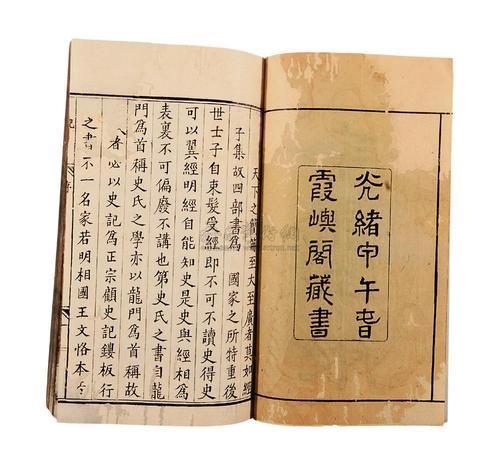 光緒甲午旾
霞嶼閣藏書
天下之至大至廣者莫如經
子集故四部書爲 國家之所特重後
世士子自束髮受經即不可不讀史得史
可以翼經明經自能知史是史與經相爲
表裏不可偏廢不講也第史氏之書自龍
門爲首稱史氏之學亦以龍門爲首稱故
者必以史記爲正宗顧史記鏤板行
之書不一名家若明相國王文恪本